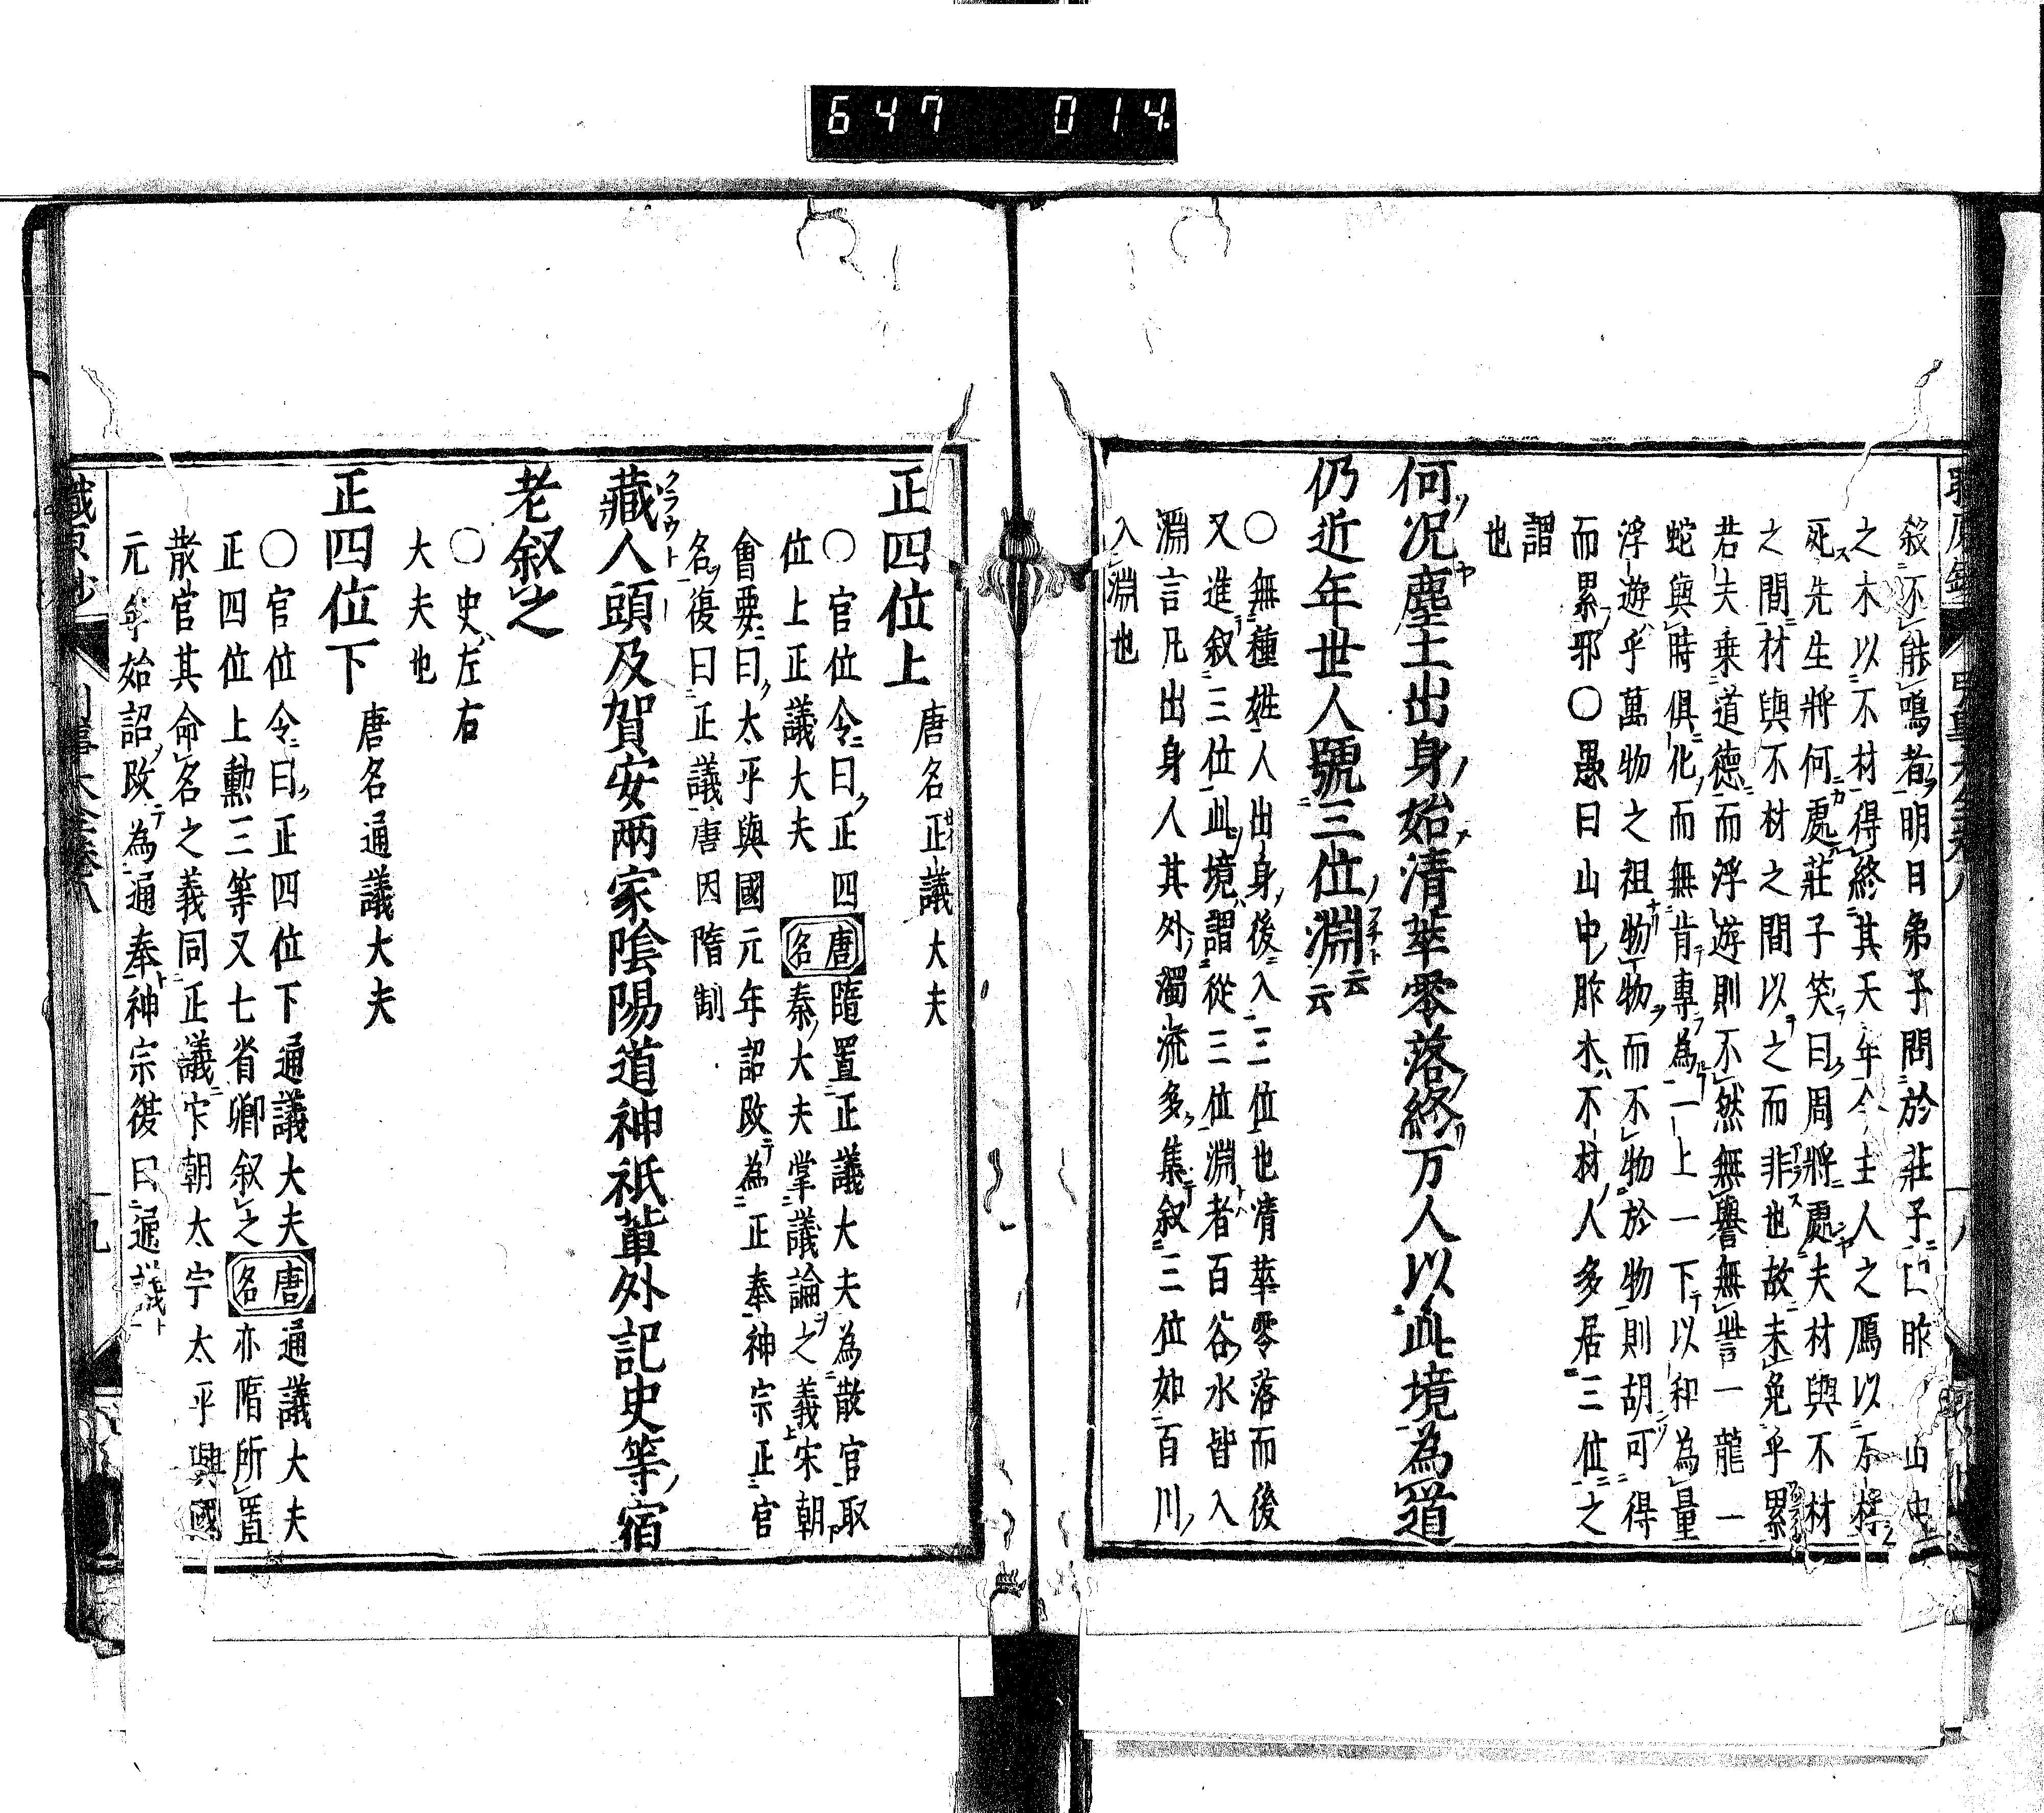 647 014
殺不能鳴者明日弟子問於莊子曰昨山中
之木以不材得終其天年今主人之鴈以不材
死先生將何處莊子笑曰周將處夫材與不材
之間材與不材之間以之而非也故未免乎累
若夫乗道德而浮遊則不然無譽無訾一龍一
蛇與時俱化而無肯專為一上一下以和為量
浮遊乎萬物之祖物物而不物於物則胡可得
而累邪○愚曰山中昨木不材人多居三位之
謂
也
何况塵土出身始清華零落終万人以此境為道
仍近年世人號三位淵云云
○無種姓人出身後入三位也清華零落而後
又進叙三位此境謂從三位淵者百谷水皆入
淵言凡出身人其外濁流多集叙三位如百川
入淵也
正四位上 唐名正議大夫
○官位令曰正四位上正議大夫
唐名 隋置正議大夫為散官取秦大夫掌議論之義宋朝
會要曰太平與國元年詔改為正奉神宗正官
名復曰正議唐因隋制
藏人頭及賀安両家陰陽道神祇軰外記史等宿
老叙之
○史左右
大夫也
正四位下 唐名通議大夫
○官位令曰正四位下通議大夫
正四位上勳三等又七省卿叙之
唐名 通議大夫亦隋所置
散官其命名之義同正議宋朝太宗太平興國
元年始詔改為通奉神宗復曰通議